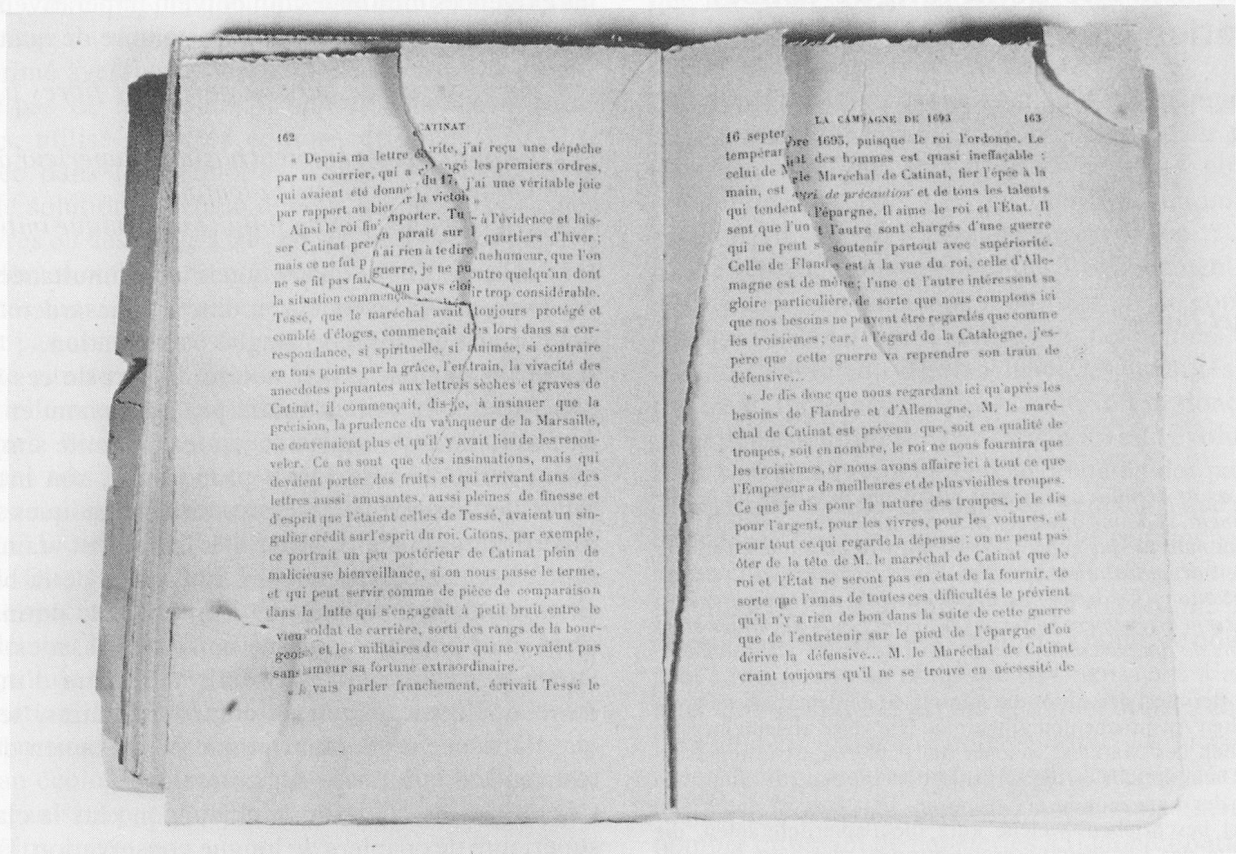 162
CATINAT
« Depuis ma lettre écrite, j'ai reçu une dépêche
par un courrier, qui a changé les premiers ordres,
qui avaient été donné du 17, j'ai une véritable joie
par rapport au bien la victoi »
Ainsi le roi fin mporter. Tu à l'évidence et lais-
ser Catinat pre n paraît sur quartiers d'hiver ;
mais ce ne fut p n'ai rien à te dire nehumeur, que l'on
ne se fit pas fau guerre, je ne pu ontre quelqu'un dont
la situation commença un pays éloi ir trop considérable.
Tessé, que le maréchal avait toujours protégé et
comblé d'éloges, commençait dès lors dans sa cor-
respondance, si spirituelle, si animée, si contraire
en tous points par la grâce, l'entrain, la vivacité des
anecdotes piquantes aux lettres sèches et graves de
Catinat, il commençait, dis-je, à insinuer que la
précision, la prudence du vainqueur de la Marsaille,
ne convenaient plus et qu'il y avait lieu de les renou-
veler. Ce ne sont que des insinuations, mais qui
devaient porter des fruits et qui arrivant dans des
lettres aussi amusantes, aussi pleines de finesse et
d'esprit que l'étaient celles de Tessé, avaient un sin-
gulier crédit sur l'esprit du roi. Citons, par exemple,
ce portrait un peu postérieur de Catinat plein de
malicieuse bienveillance, si on nous passe le terme,
et qui peut servir comme de pièce de comparaison
dans la lutte qui s'engageait à petit bruit entre le
vieux soldat de carrière, sorti des rangs de la bour-
geoisie et les militaires de cour qui ne voyaient pas
sans humeur sa fortune extraordinaire.
Je vais parler franchement, écrivait Tessé le
LA CAMPAGNE DE 1693
163
16 septembre 1695, puisque le roi l'ordonne. Le
tempérament des hommes est quasi ineffaçable :
celui de M. le Maréchal de Catinat, fier l'épée à la
main, est pétri de précaution et de tous les talents
qui tendent à l'épargne. Il aime le roi et l'État. Il
sent que l'un et l'autre sont chargés d'une guerre
qui ne peut se soutenir partout avec supériorité.
Celle de Flandre est à la vue du roi, celle d'Alle-
magne est de même ; l'une et l'autre intéressent sa
gloire particulière, de sorte que nous comptons ici
que nos besoins ne peuvent être regardés que comme
les troisièmes ; car, à l'égard de la Catalogne, j'es-
père que cette guerre va reprendre son train de
défensive...
« Je dis donc que nous regardant ici qu'après les
besoins de Flandre et d'Allemagne, M. le maré-
chal de Catinat est prévenu que, soit en qualité de
troupes, soit en nombre, le roi ne nous fournira que
les troisièmes, or nous avons affaire ici à tout ce que
l'Empereur a de meilleures et de plus vieilles troupes.
Ce que je dis pour la nature des troupes, je le dis
pour l'argent, pour les vivres, pour les voitures, et
pour tout ce qui regarde la dépense ; on ne peut pas
ôter de la tête de M. le maréchal de Catinat que le
roi et l'État ne seront pas en état de la fournir, de
sorte que l'amas de toutes ces difficultés le prévient
qu'il n'y a rien de bon dans la suite de cette guerre
que de l'entretenir sur le pied de l'épargne d'où
dérive la défensive... M. le Maréchal de Catinat
craint toujours qu'il ne se trouve en nécessité de